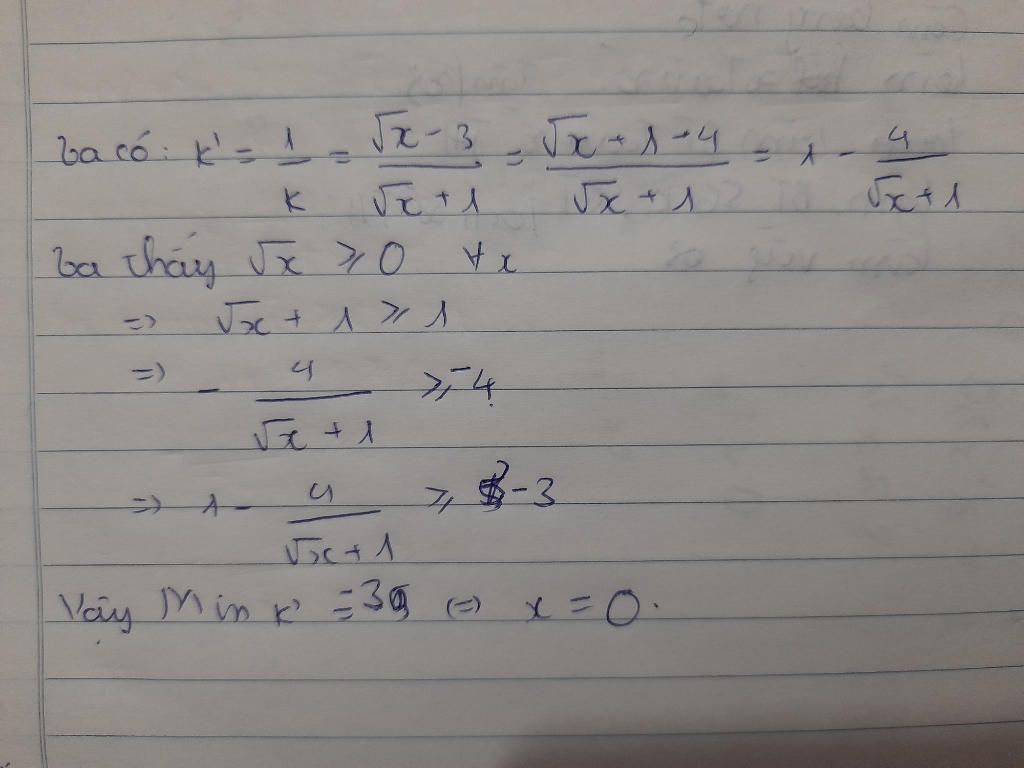 Ta có: K' = 1/K = (√x - 3)/(√x + 1) = (√x + 1 - 4)/(√x + 1) = 1 - 4/(√x + 1)
Ta thấy √x ⩾ 0 ∀x
=> √x + 1 ⩾ 1
=> - 4/(√x + 1) ⩾ -4
=> 1 - 4/(√x + 1) ⩾ -3
Vậy Min K' = -3 (=) x = 0.